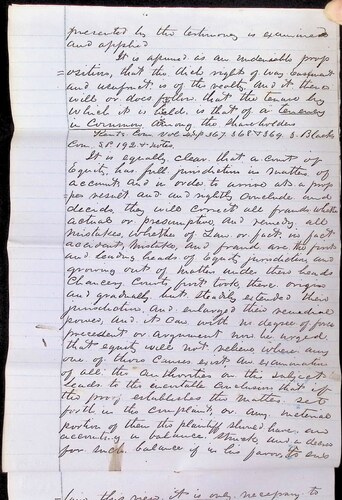 presented by the testimony is examined
and applied
It is assumed as an undeniable prop
=osition, that the ditch right of way Easement
and usufruct, is of the realty, and it then
will or does follow that the tenure by
which it is held, is that of a tenancy
in Common among the shareholders
Kents Com. Vol 367, 368 & 369. 2. Blacks
Com. SP 192 & notes.
It is equally clear, that a Court of
Equity has full jurisdiction in matters of
account, and in order to arrive at a prop
=er result and and rightly conclude and
decide, they will correct all frauds whether
actual or presumptive, and remedy all
mistakes, whether of Law or fact, in fact
accident, Mistake, and fraud are the first
and leading heads of Equity jurisdiction, and
growing out of matter under these heads
Chancery Courts first took there origin
and gradually but steadily extended their
jurisdiction and enlarged their remedial
power, and it can with no degree of force
precedent or argument now be urged
that equity will not relieve where any
one of these Causes exist. An examination
of all the Authorities on the subject
leads to the inevitable Conclusion that if
the proof establishes the matters set
forth in the complaint, or any material
portion of them the plaintiff should have an
accounting, a balance struck, and a decree
for such balance if in his favor, to
this view, it is only necessary to